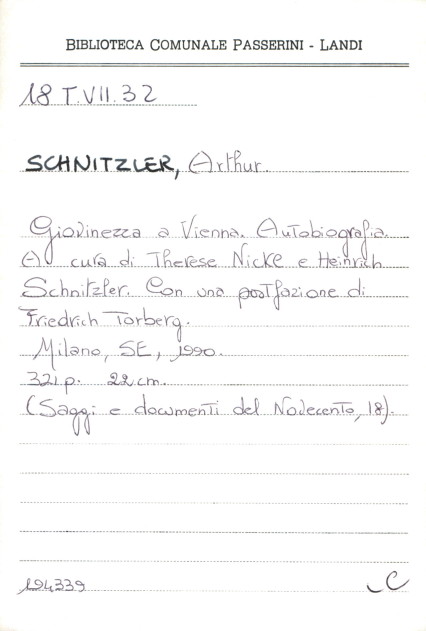 BIBLIOTECA COMUNALE PASSERINI - LANDI
18 T.VII.32
SCHNITZLER, Arthur.
Giovinezza a Vienna. Autobiografia.
A cura di Therese Nicke e Heinrich
Schnitzler. Con una postfazione di
Friedrich Torberg.
Milano, SE, 1990.
321 p. 22 cm.
(Saggi e documenti del Novecento, 18).
194339
C